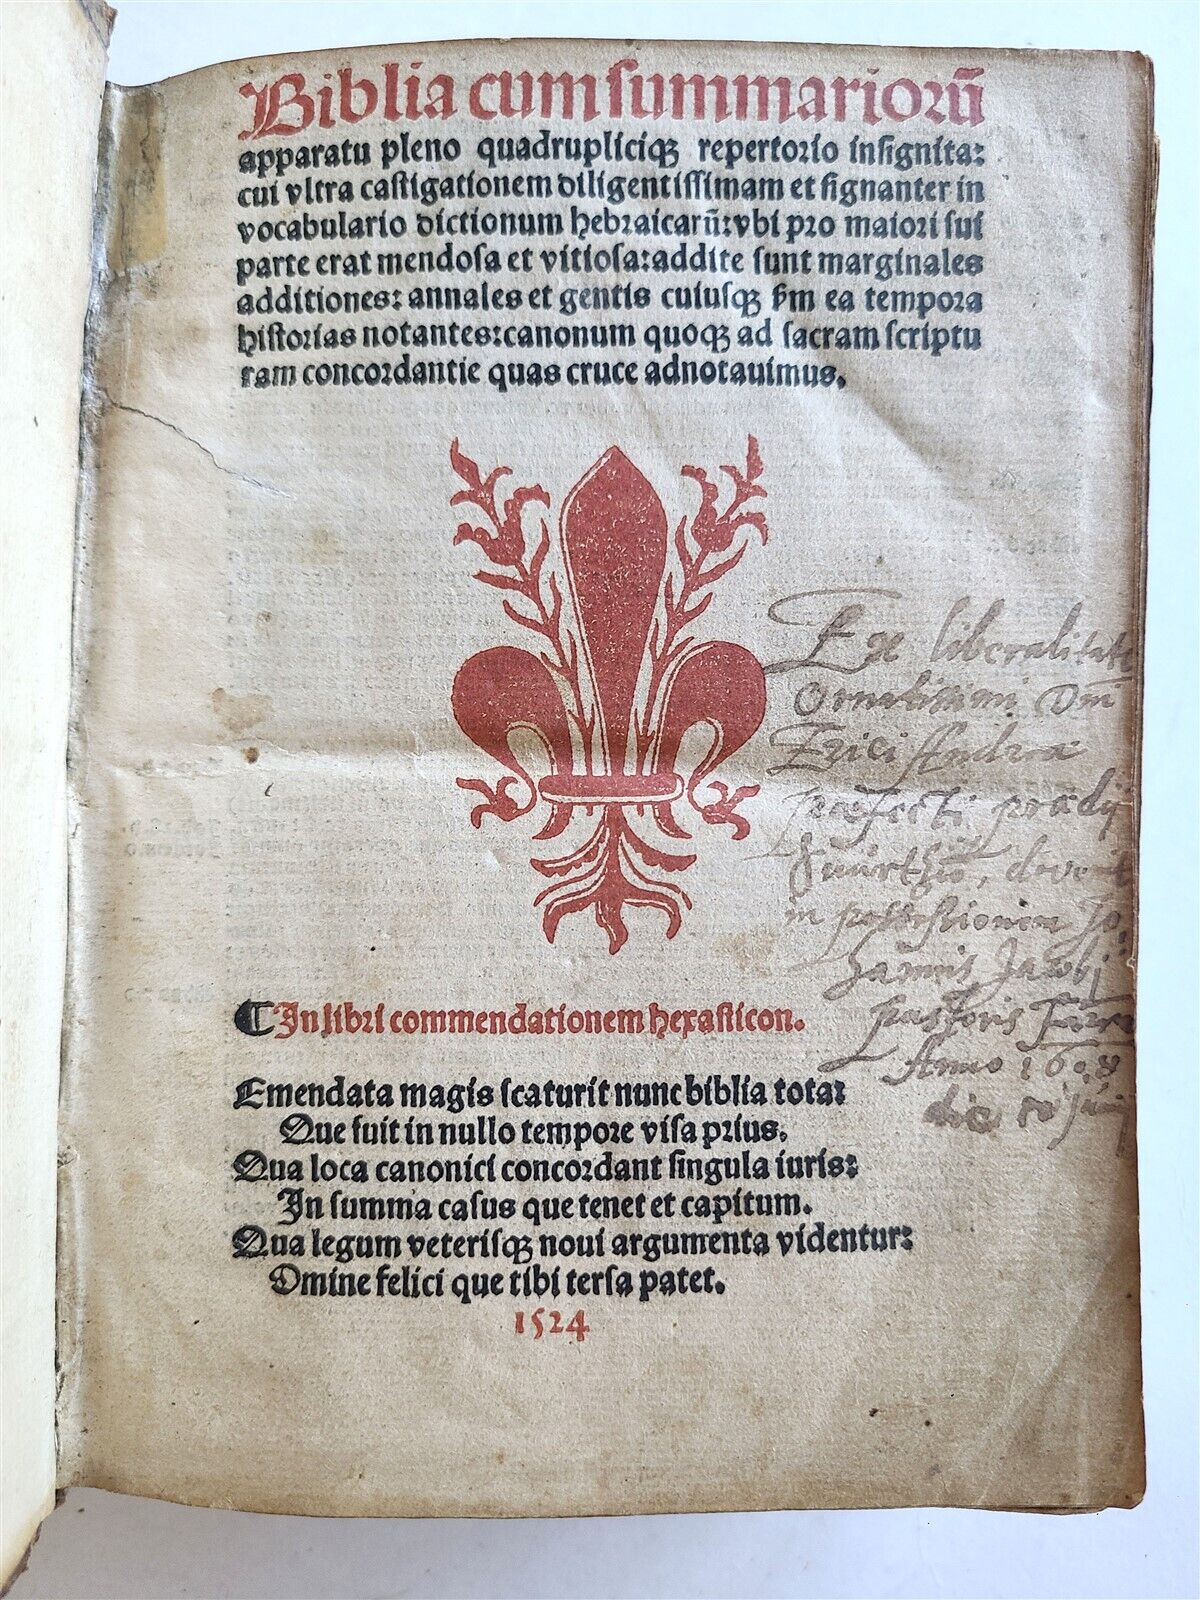 Biblia cum summariorū
apparatu pleno quadrupliciqꝫ repertorio insignita:
cui vltra castigationem diligentissimam et signanter in
vocabulario dictionum hebraicarū: vbi pro maiori sui
parte erat mendosa et vitiosa: addite sunt marginales
additiones: annales et gentis cuiusqꝫ ẜm ea tempora
historias notantes: canonum quoqꝫ ad sacram scriptu
ram concordantie quas cruce adnotauimus.
Ex liberalitate
Ornatissimi Dni
Erici Andreæ
præfecti prædij
devenit
in possessionem Jo,
hannis Jacobj
pastoris
Anno 16
die Junij
¶ In libri commendationem hexasticon.
Emendata magis scaturit nunc biblia tota:
Que fuit in nullo tempore visa prius.
Qua loca canonici concordant singula iuris:
In summa casus que tenet et capitum.
Qua legum veterisqꝫ noui argumenta videntur:
Omine felici que tibi tersa patet.
1524